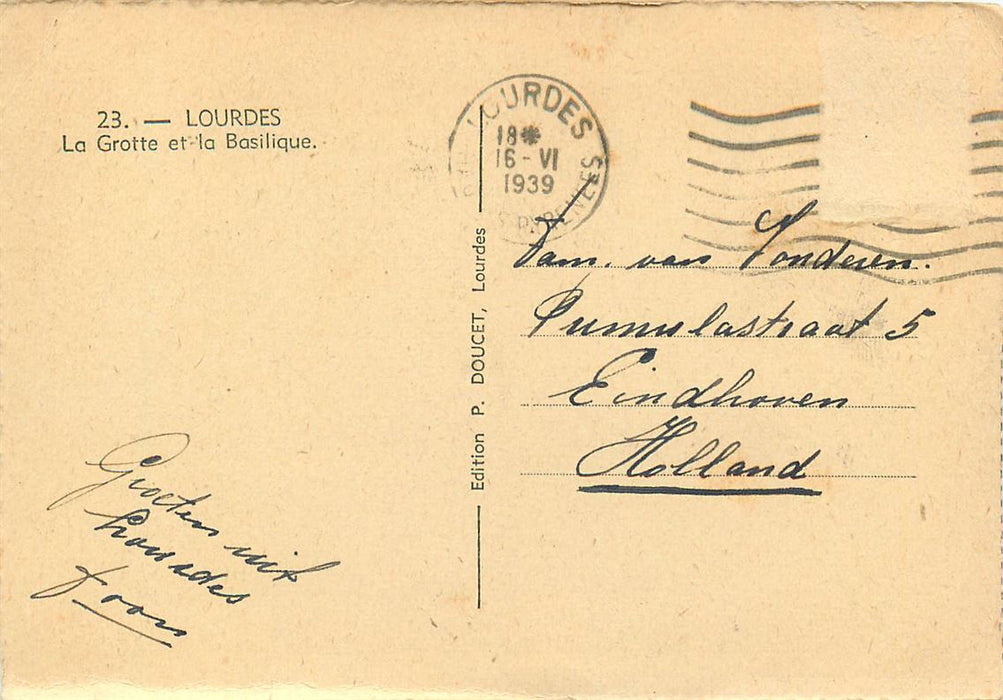 23. — LOURDES
La Grotte et la Basilique.
LOURDES
18*
16-VI
1939
PYRENEES
Edition P. DOUCET, Lourdes
Fam. van Sonderen.
Pumulastraat 5
Eindhoven
Holland
Groeten uit
Lourdes
Toon